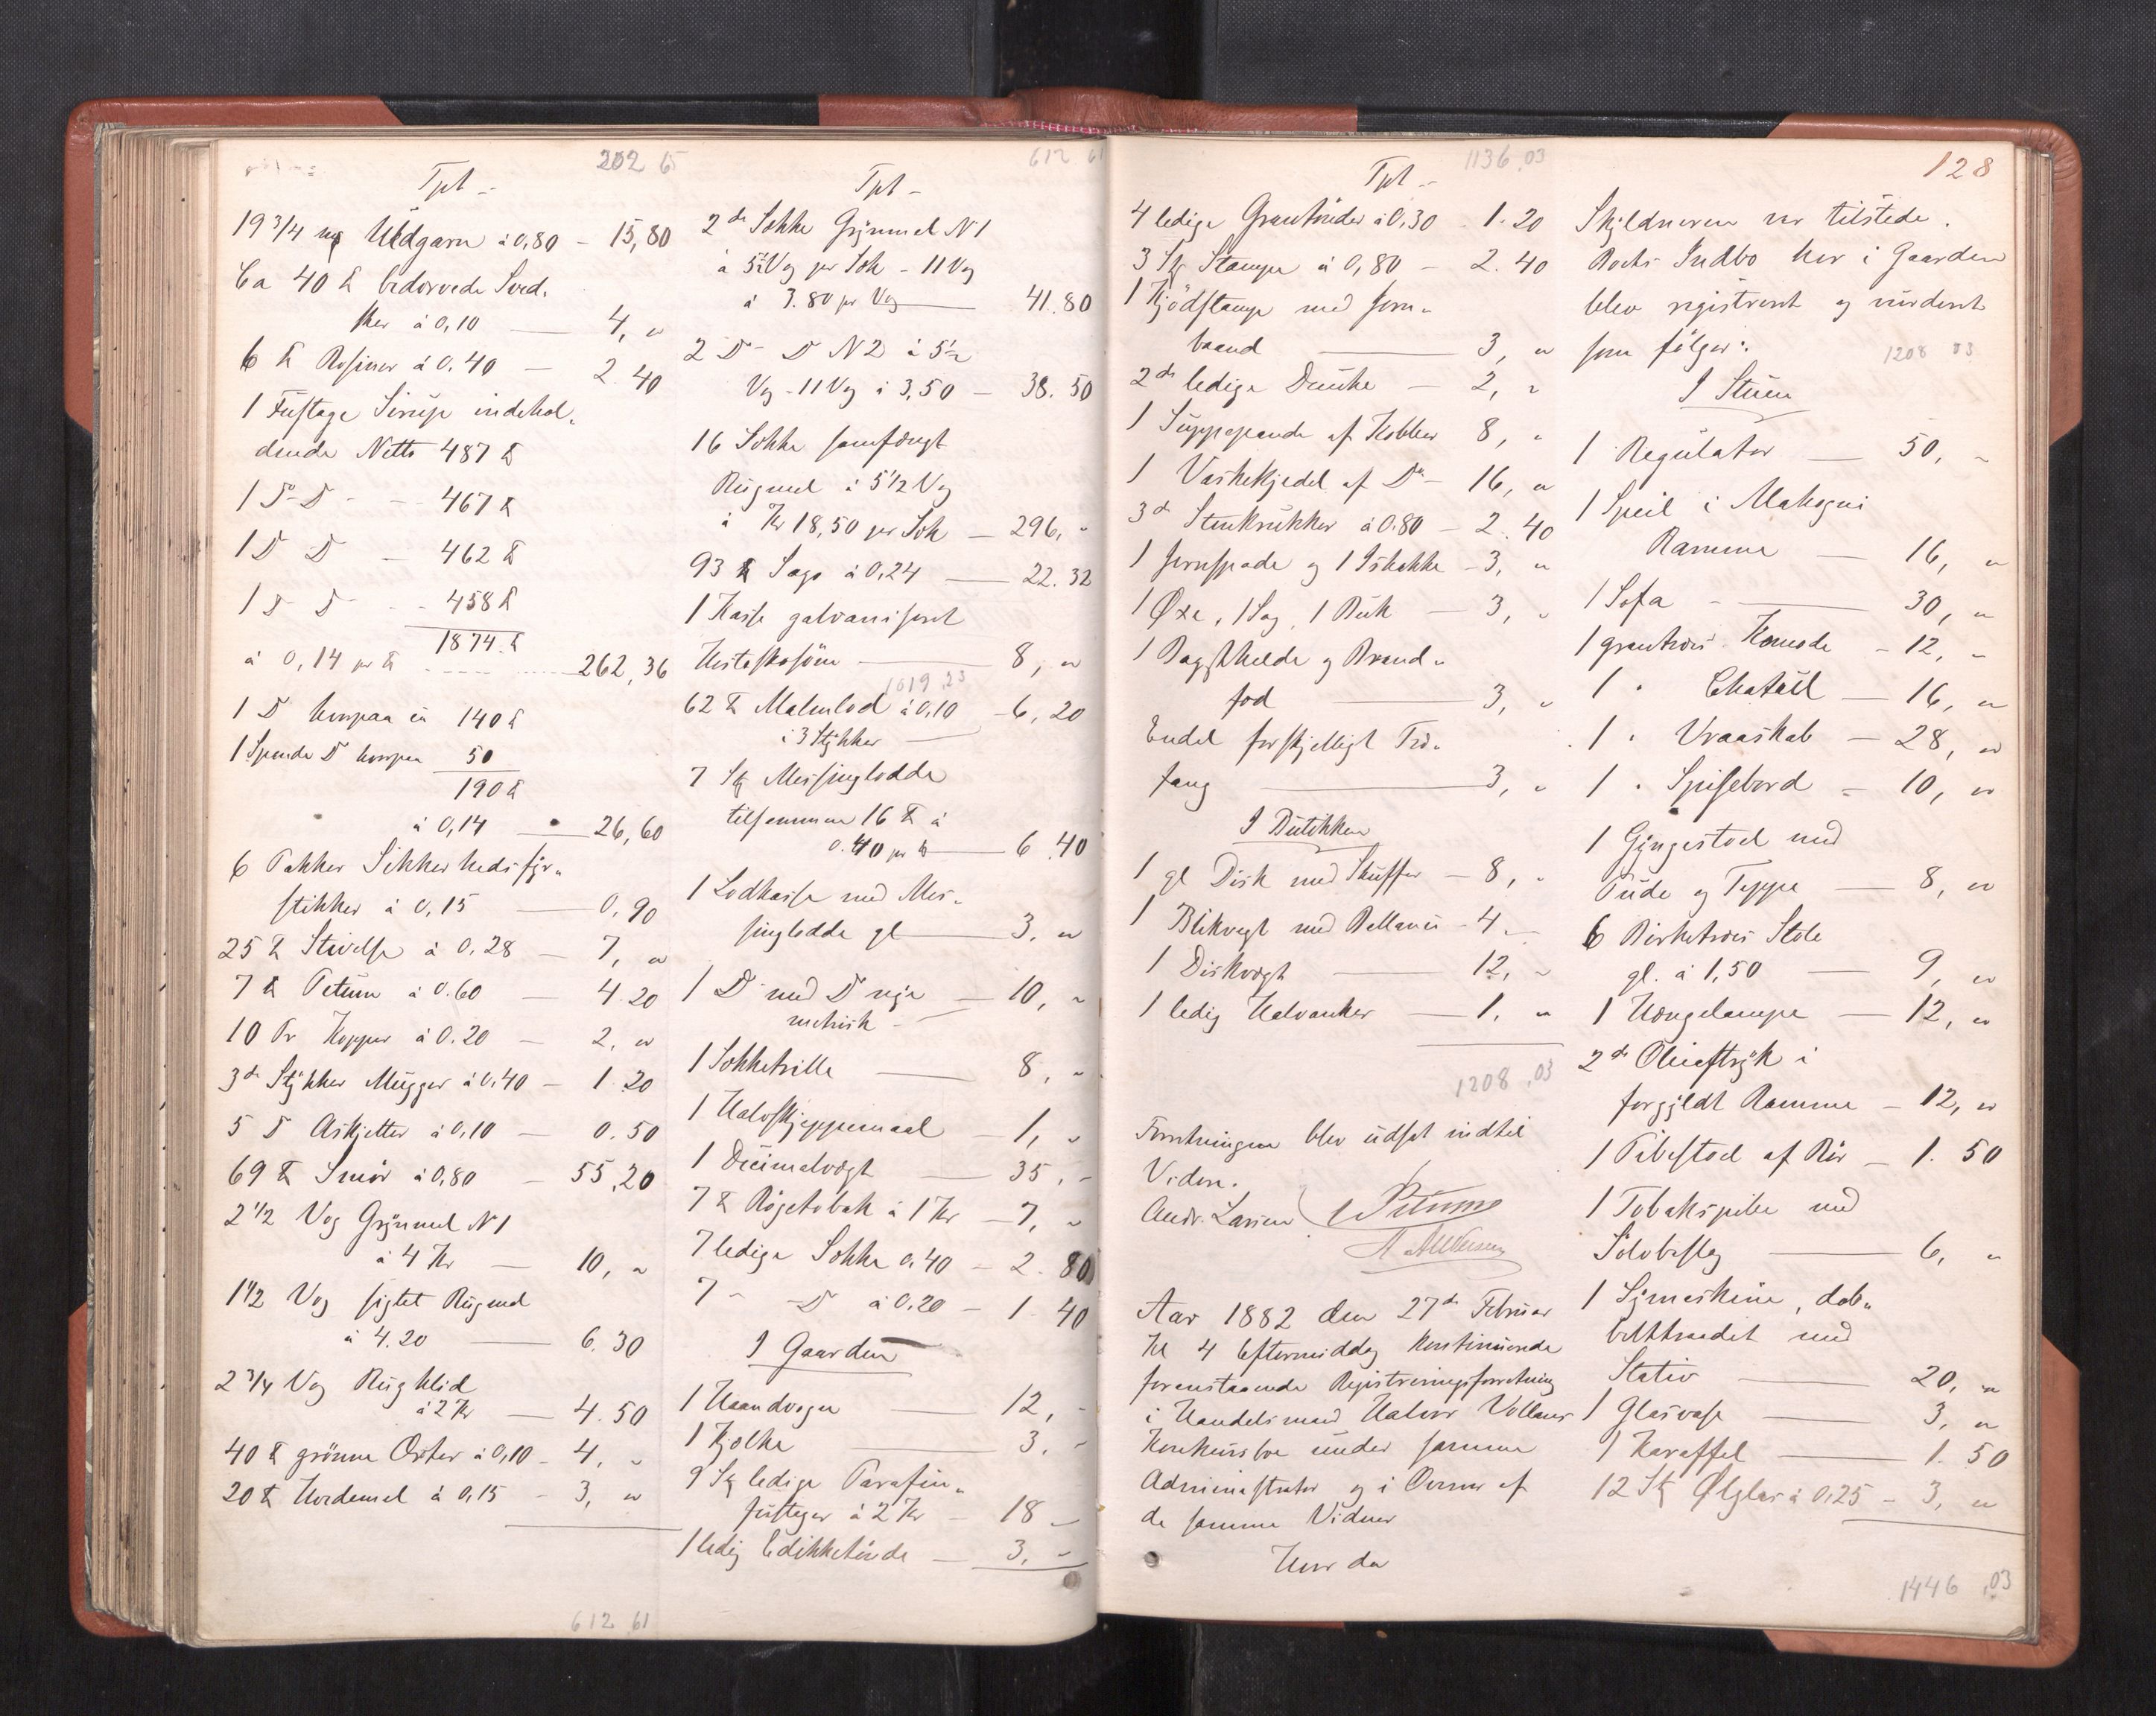 202 65
Tpt
19 3/4 Uldgarn à 0,80 - 15,80
Ca 40 ℔ bedærvede Sved.
sker à 0,10 — 4, "
6 ℔ Rosiner à 0.40 — 2.40
1 Fustage Sirup indehol„
dende Netto 487 ℔
1 Do D - 467 ℔
1 D D - 462 ℔
1 D D - 458 ℔
1874 ℔
à 0,14 pr ℔ 262,36
1 D hvorpaa ca 140 ℔
1 Spænde D hvorpaa 50
190 ℔
à 0,14 — 26,60
6 Pakker Sikkerhedsfyr„
stikker à 0,15 — 0,90
25 ℔ Stivelse à 0.28 — 7, "
7 ℔ Petum à 0.60 — 4.20
10 Pr Kopper à 0.20 — 2, "
3de Stykker Mugger à 0,40 — 1.20
5 D Askjetter à 0,10 — 0.50
69 ℔ Smör à 0,80 — 55,20
2 1/2 Vog Grynmel N 1
à 4 Kr — 10, "
1 1/2 Vog sigtet Rugmel
à 4.20 — 6.30
2 1/4 Vog Rugklid
à 2 Kr — 4.50
40 ℔ grönne Erter à 0,10 - 4, "
20 ℔ Hvedemel à 0,15 - 3, "
612 61
612 61
Tpt
2de Sække Grynmel N 1
à 5 1/2 Vog pr Sæk - 11 Vog
à 3.80 pr Vog — 41.80
2 D D N 2 à 5 1/2
Vog - 11 Vog à 3,50 — 38.50
16 Sække samfængt
Rugmel à 5 1/2 Vog
à Kr 18,50 pr Sæk — 296, "
93 ℔ Sago à 0,24 — 22.32
1 Kasse galvaniseret
Hesteskosöm — 8, "
1019.23
62 ℔ Malmlod à 0,10 - 6,20
i 3 Stykker —
7 Stk Messinglodde
tilsammen 16 ℔ à
0.40 pr ℔ — 6.40
1 Lodkasse med Mes„
singlodde gl — 3, "
1 D med D nye — 10, "
metrisk -
1 Sækketrille — 8, "
1 Halvskjeppemaal — 1, "
1 Decimalvægt — 35, "
7 ℔ Røgetobak à 1 Kr — 7, "
7 ledige Sække 0,40 — 2.80
7 - D à 0,20 — 1.40
I Gaarden
1 Haandvogn — 12, "
1 Kjælke — 3, "
9 Stk ledige Parafin„
fustager à 2 Kr — 18 "
1 ledig Edikketönde — 3, "
1136.03
Tpt
4 ledige Grantønder à 0,30 - 1.20
3 Stk Stamper à 0,80 — 2.40
1 Kjödstampe med Jern„
baand — 3, "
2de ledige Dunke — 2, "
1 Suppepande af Kobber 8, "
1 Vaskekjedel af Do - 16, "
3de Stenkrukker à 0.80 — 2.40
1 Jernspade og 1 Ishakke - 3, "
1 Øxe, 1 Sag, 1 Buk — 3, "
1 Bagsthelle og Brand„
fod — 3, "
Endel forskjelligt Træ„
fang — 3, "
I Butikken
1 gl Disk med Skuffer — 8, "
1 Blikvegt med Ballance - 4 "
1 Diskvægt — 12, "
1 ledig Halvanker — 1, "
1208.03
Forretningen blev udsat indtil
Videre.
Andr. Larsen
Aar 1882 den 27de Februar
Kl 4 Eftermiddag kontinuerede
foranstaaende Registreringsforretning
i Handelsmand Halvor Vollans
Konkursbo under samme
Administrator og i Overvær af
de samme Vidner
Hvor da
128
Skyldneren var tilstede.
Boets Indbo her i Gaarden
blev registreret og vurderet
som følger:
1208 03
I Stuen
1 Regulator — 50, "
1 Speil i Mahogni
Ramme — 16, "
1 Sofa — 30, "
1 grantræes Komode - 12, "
1 " Chatull — 16, "
1 " Vraaskab — 28, "
1 " Spisebord - 10, "
1 Gyngestol med
Pude og Teppe — 8, "
6 Birketræes Stole
gl. à 1,50 — 9, "
1 Hængelampe — 12, "
2de Olieftryk i
forgyldt Ramme — 12, "
1 Pibestol af Rör — 1.50
1 Tobakspibe med
Sölvbeslag — 6, "
1 Symaskine, dob„
belttraadet med
Stativ — 20, "
1 Glasvase — 3, "
1 Karaffel — 1.50
12 Stk Ølglas à 0,25 - 3, "
1446,03